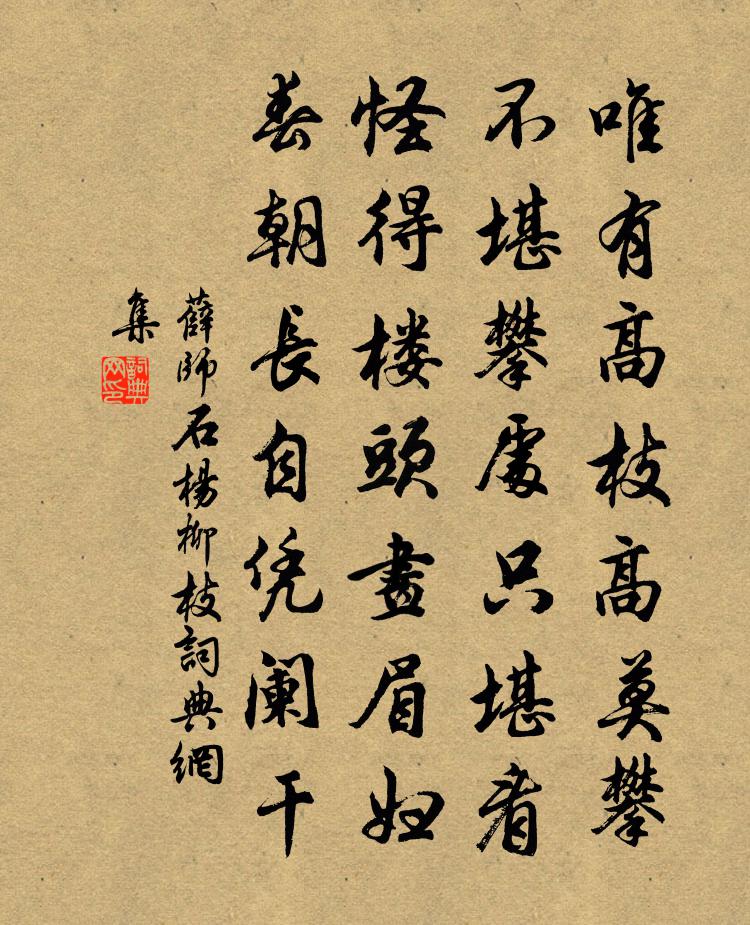 唯有高枝高莫攀
不堪攀處只堪看
怪得楼頭畫眉妇
春朝長自凭阑干
薛師石楊柳枝詞典網
集
詞典
网印